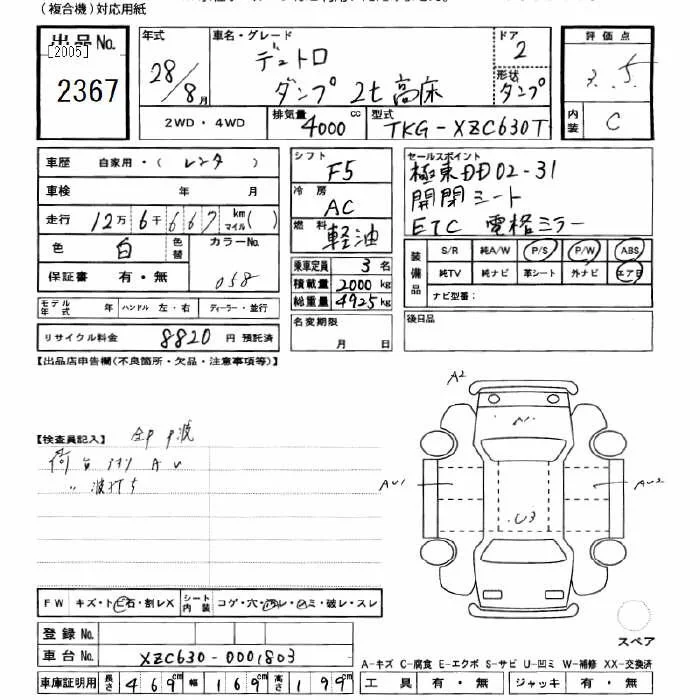 (複合機)対応用紙
出品No.
[2005]
2367
年式
28/8月
車名・グレード
デュトロ
ダンプ 2t 高床
ドア
2
形状
ダンプ
評価点
3.5
内装
C
2WD・4WD
排気量
4000 cc
型式
TKG-XZC630T
車歴 自家用・(レンタ)
車検 年 月
走行 12万6千667 km マイル( )
色 白 色替
カラーNo.
058
保証書 有・無
モデル年式 年 ハンドル 左・右 ディーラー・並行
リサイクル料金 8820 円 預託済
シフト
F5
冷房
AC
燃料
軽油
乗車定員 3名
積載量 2000 kg
総重量 4925 kg
名変期限
月 日
セールスポイント
極東DD02-31
開閉シート
ETC 電格ミラー
装備品
S/R 純A/W P/S P/W ABS
純TV 純ナビ 革シート 外ナビ エアB
ナビ型番:
後日品
【出品店申告欄(不良箇所・欠品・注意事項等)】
【検査員記入】
荷台 AU
〃 波打ち
A2
A1
AU1
AU2
U3
FW キズ・トビ石・割レX
シート内装 コゲ・穴・スレ・シミ・破レ・スレ
登録No.
車台No. XZC630-0001803
車庫証明用 長さ 469cm 幅 169cm 高さ 199cm
スペア
A-キズ C-腐食 E-エクボ S-サビ U-凹ミ W-補修 XX-交換済
工具 有・無 ジャッキ 有・無